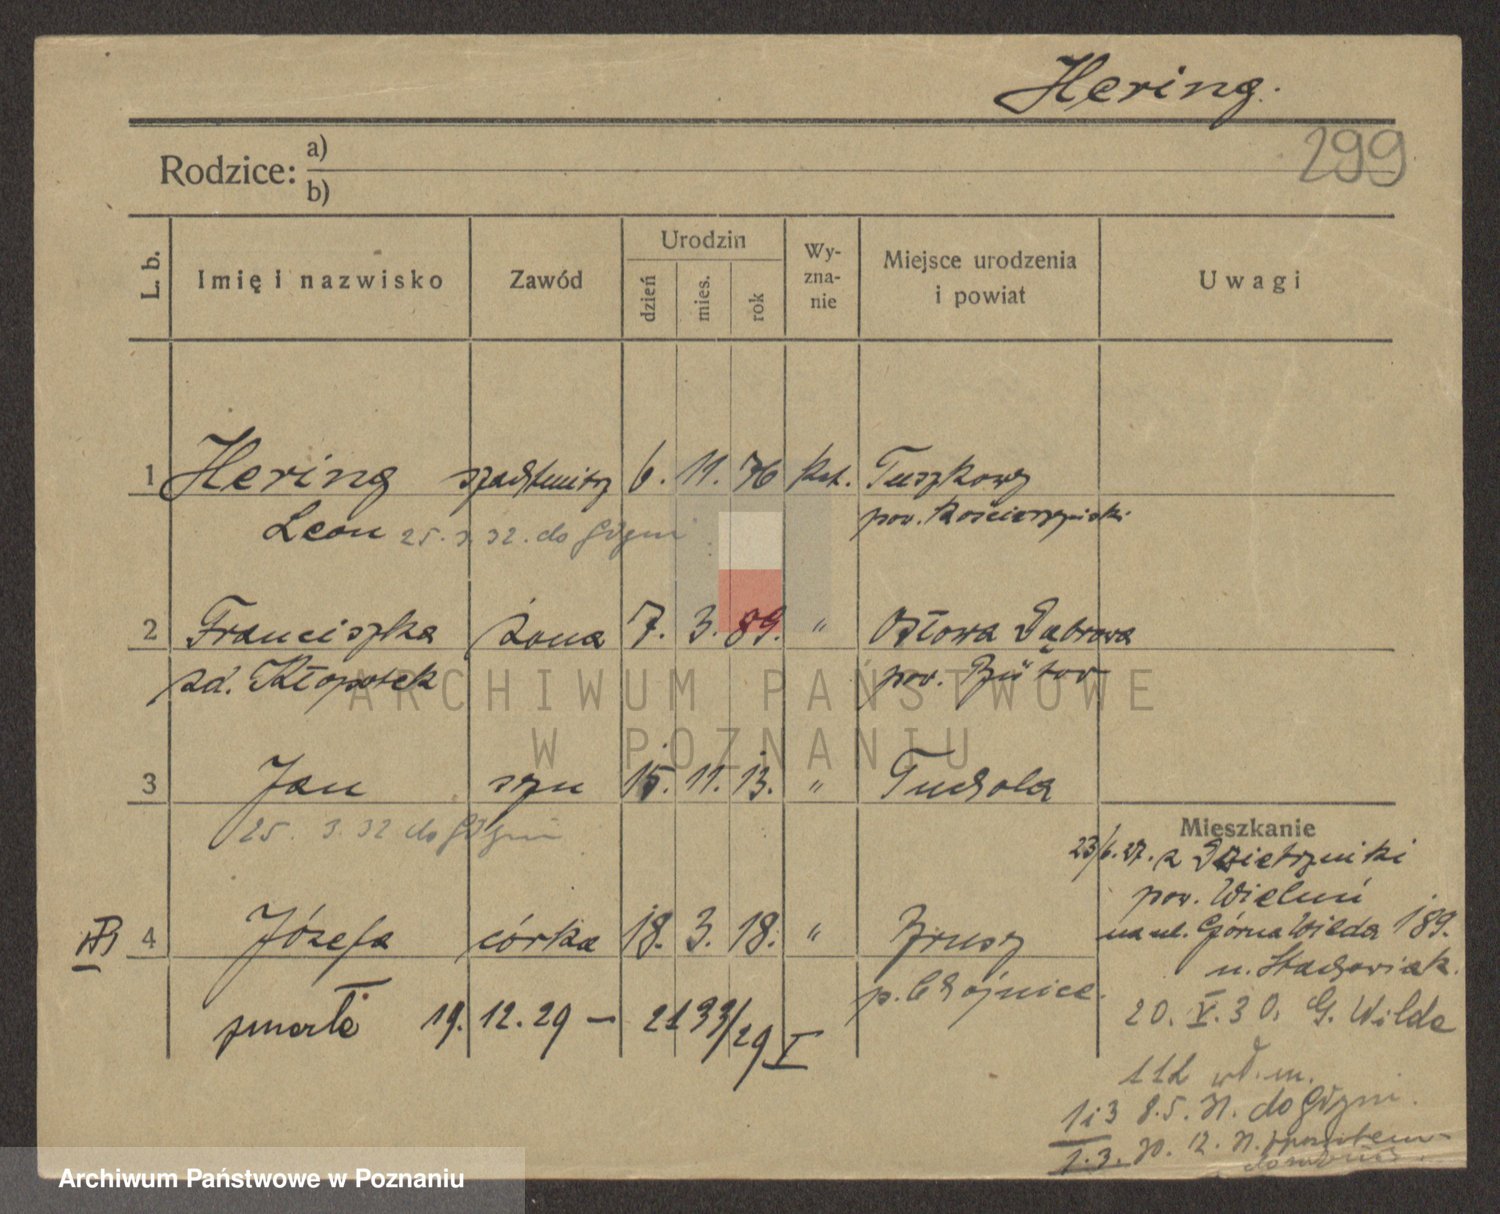 Hering.
299
Rodzice: a)
b)
L. b. Imię i nazwisko Zawód Urodzin dzień mies. rok Wy-zna-nie Miejsce urodzenia i powiat Uwagi
1 Hering 6. 11. 76 kat. Tuszkowy
Leon 25. 3. 32. do Gdyni pow. Kościerzyński
2 Franciszka żona 7. 3. 89. " Osłowa Dąbrowa
zd. Kłopotek pow. Bütow
ARCHIWUM PAŃSTWOWE
W POZNANIU
3 Jan syn 15. 11. 13. " Tuchola
25. 3. 32 do Gdyni
Mieszkanie
23/6. 27. z Dzietrzniki
pow. Wieluń
4 Józefa córka 18. 3. 18. " Brusy
na ul. Górna Wilda 189.
u. Stachowiak.
p. Chojnice.
zmarła 19. 12. 29 — 2133/29 I
20. V. 30. G. Wilda
112 wł. m.
1 i 3 8. 5. 31. do Gdyni.
1. 3. 30. 12. 31. z powrotem
Archiwum Państwowe w Poznaniu